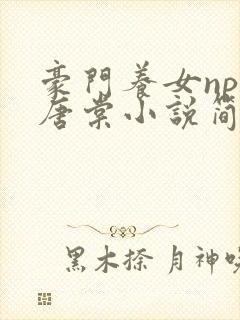 豪門養女np
唐棠小說簡
黑木捺 月神